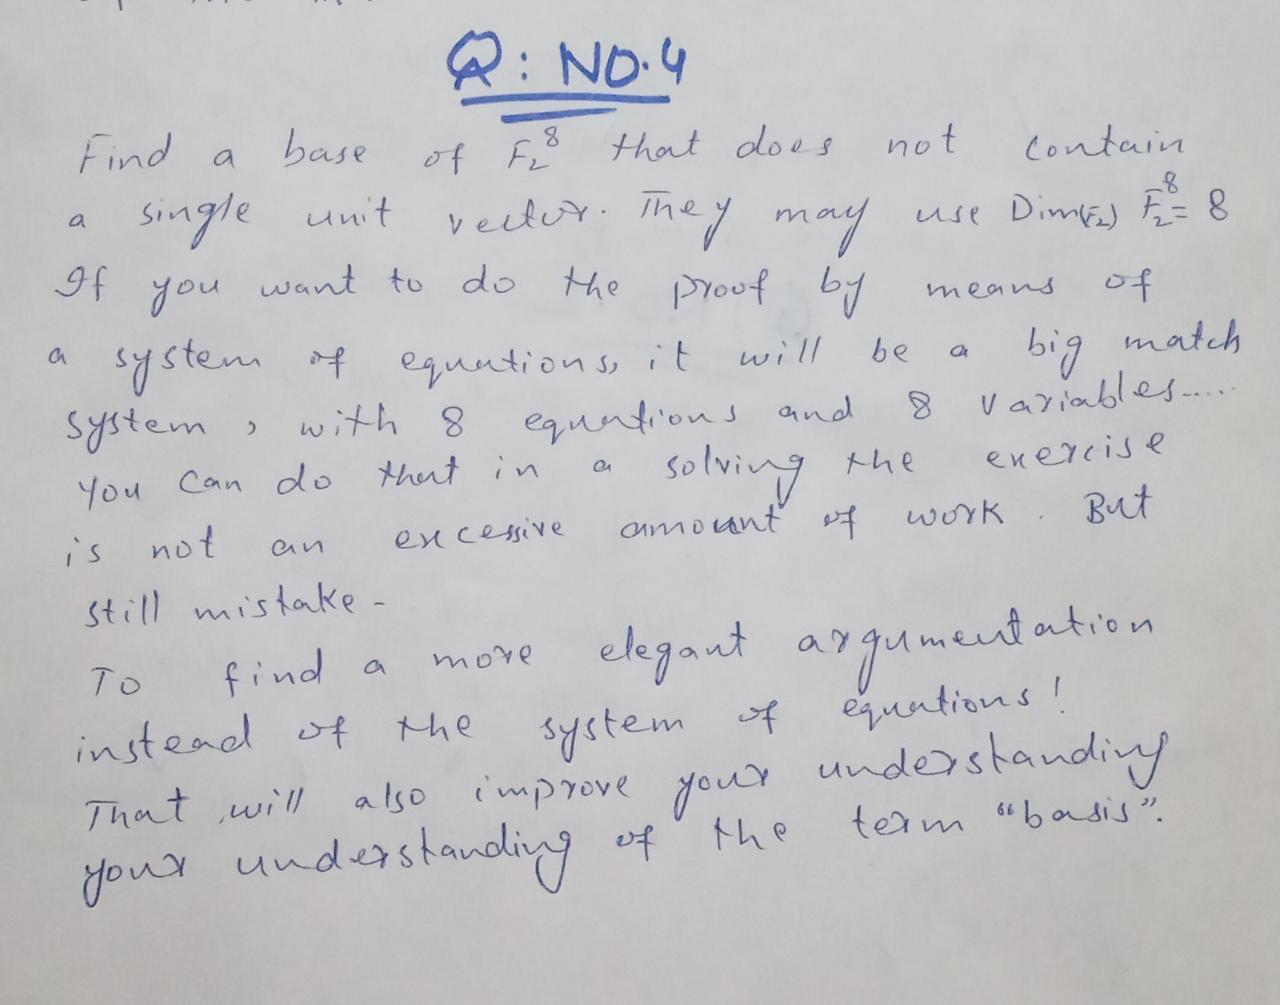 Q: NO.4
Find a base of F₂⁸ that does not contain
a single unit vector. They may use Dim(F₂) F₂⁸= 8
If you want to do the proof by means of
a system of equations, it will be a big match
system, with 8 equations and 8 variables.....
you can do that in a solving the exercise
is not an excessive amount of work. But
still mistake-
To find a more elegant argumentation
instead of the system of equations!
That will also improve your understanding
your understanding of the term "basis".